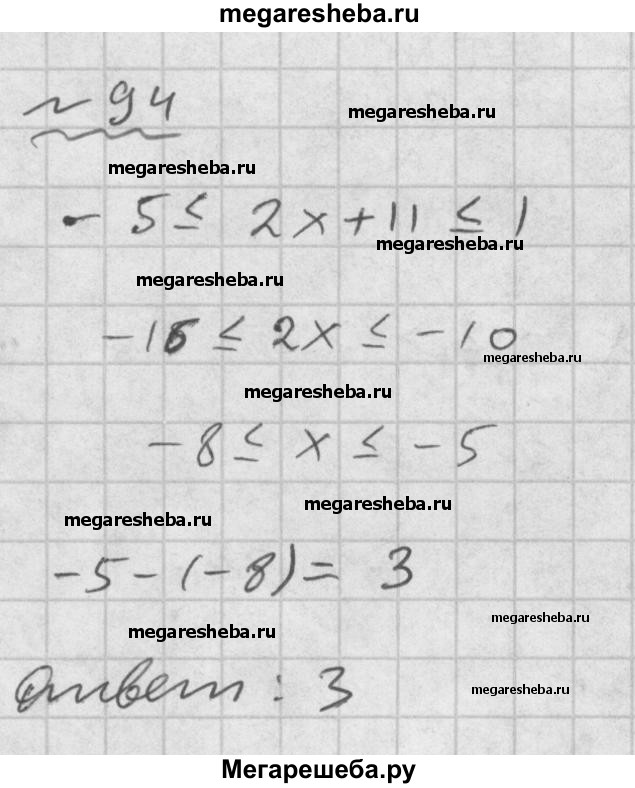 megaresheba.ru
~ 94
megaresheba.ru
megaresheba.ru
- 5 ≤ 2x + 11 ≤ 1
megaresheba.ru
megaresheba.ru
-16 ≤ 2x ≤ -10
megaresheba.ru
megaresheba.ru
-8 ≤ x ≤ -5
megaresheba.ru
megaresheba.ru
-5-(-8)= 3
megaresheba.ru
megaresheba.ru
Ответ: 3
megaresheba.ru
Мегарешеба.ру